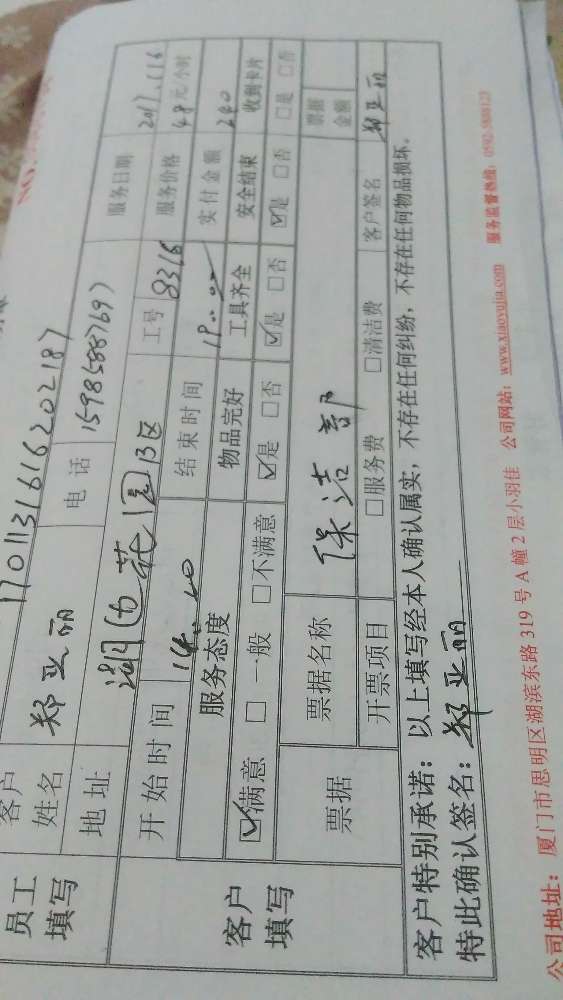 NO.
1701131616202187
员工填写
客户姓名 郑亚丽 电话 15985887697 服务日期 2017.1.16
地址 湖边花园B区 工号 8316 服务价格 48元/小时
开始时间 14:00 结束时间 19:00 实付金额 240
客户填写
服务态度 物品完好 工具齐全 安全结束 收到卡片
☑满意 □一般 □不满意 ☑是 □否 ☑是 □否 ☑是 □否 □是 □否
票据 票据名称 保洁部 票据金额
开票项目 □服务费 □清洁费 客户签名 郑亚丽
客户特别承诺：以上填写经本人确认属实，不存在任何纠纷，不存在任何物品损坏。
特此确认签名：郑亚丽
公司地址：厦门市思明区湖滨东路319号A幢2层小羽佳 公司网站：www.xiaoyujia.com 服务监督热线：0592-5880123